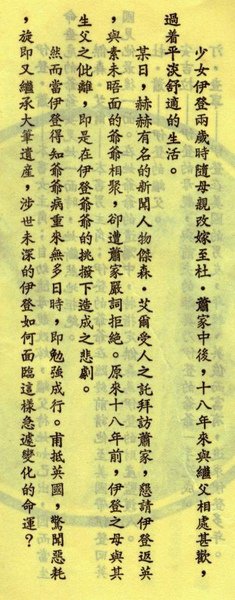 少女伊登兩歲時隨母親改嫁至杜·蕭家中後，十八年來與繼父相處甚歡，
過着平淡舒適的生活。
某日，赫赫有名的新聞人物傑森·艾爾受人之託拜訪蕭家，懇請伊登返英
，與素未晤面的爺爺相聚，卻遭蕭家嚴詞拒絶。原來十八年前，伊登之母與其
生父之仳離，即是在伊登爺爺的挑撥下造成之悲劇。
然而當伊登得知爺爺病重來無多日時，即勉強成行。甫抵英國，驚聞惡耗
，旋即又繼承大筆遺產，涉世未深的伊登如何面臨這樣急遽變化的命運？